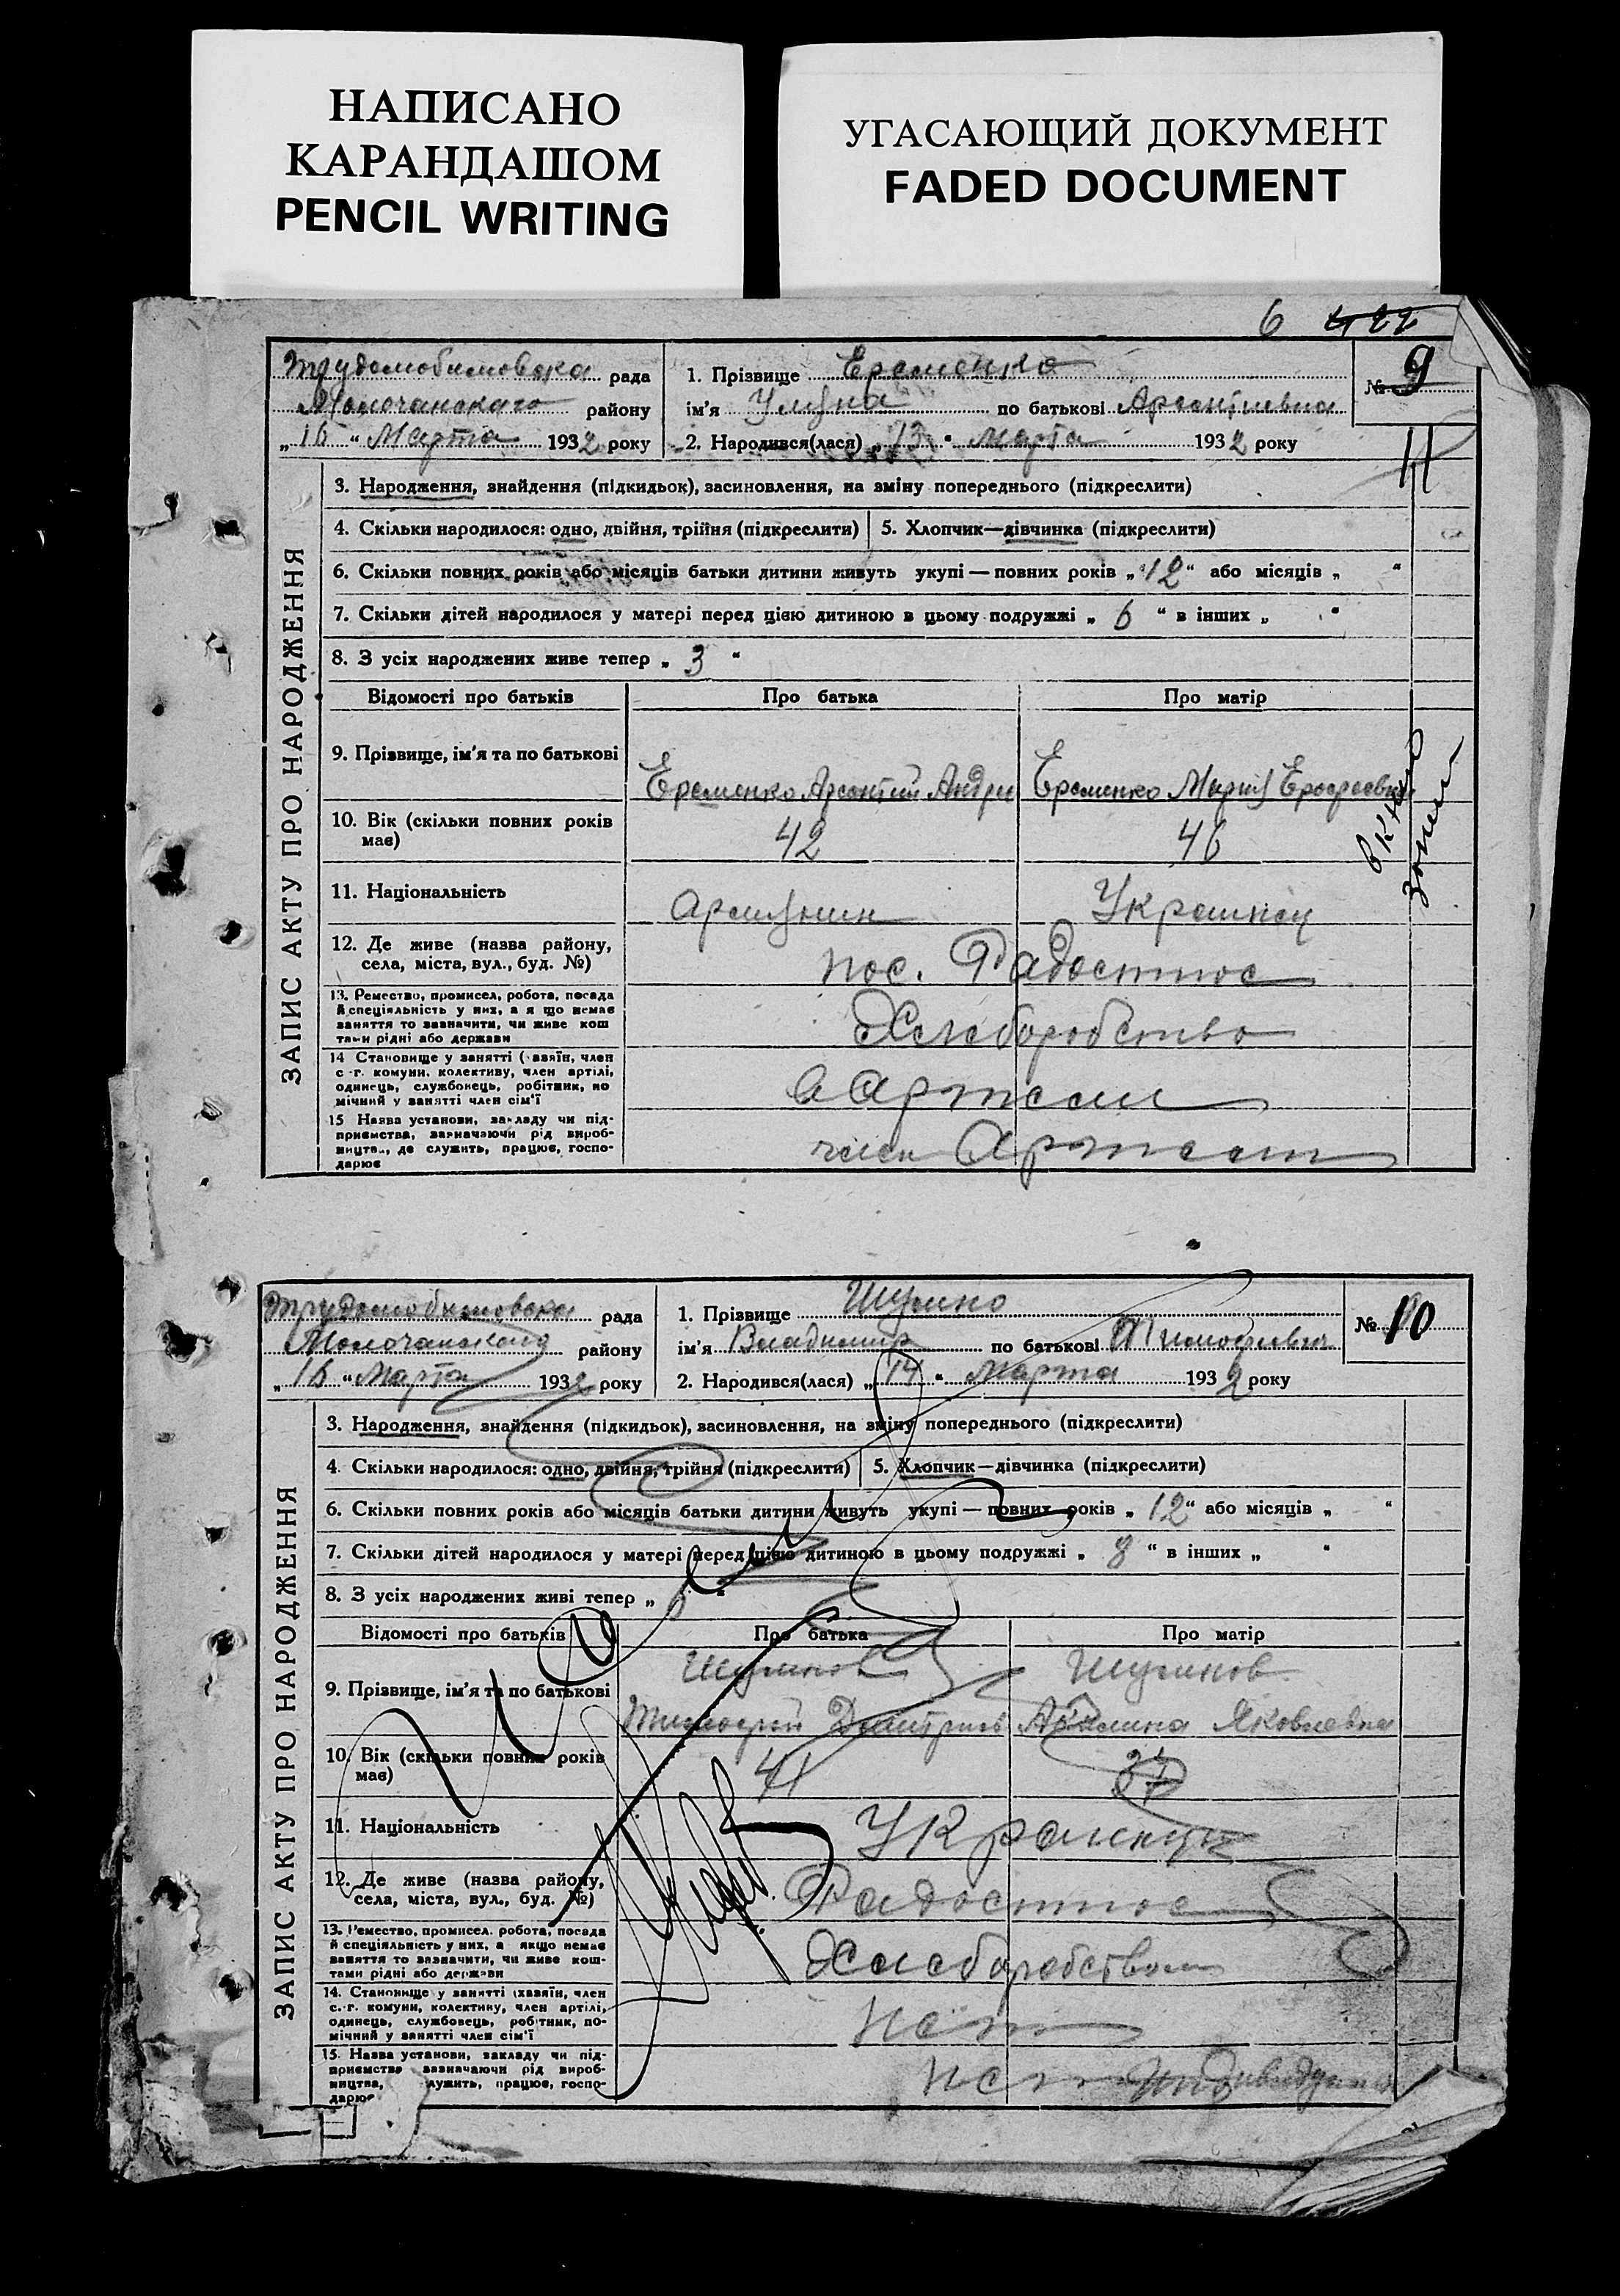 НАПИСАНО
КАРАНДАШОМ
PENCIL WRITING
УГАСАЮЩИЙ ДОКУМЕНТ
FADED DOCUMENT
6 422
Трудолюбимовска рада
Молочанского району
„16“ Марта 1932 року
1. Прізвище Еременко
ім'я по батькові
2. Народився(лася) „13“ Марта 1932 року
№ 9
ЗАПИС АКТУ ПРО НАРОДЖЕННЯ
3. Народження, знайдення (підкидьок), засиновлення, на зміну попереднього (підкреслити)
4. Скільки народилося: одно, двійня, трійня (підкреслити) 5. Хлопчик—дівчинка (підкреслити)
6. Скільки повних років або місяців батьки дитини живуть укупі — повних років „12“ або місяців „ “
7. Скільки дітей народилося у матері перед цією дитиною в цьому подружжі „6“ в інших „ “
8. З усіх народжених живе тепер „3“
Відомості про батьків Про батька Про матір
9. Прізвище, ім'я та по батькові Еременко Арсентий Андре Еременко Мария
10. Вік (скільки повних років має) 42 46
11. Національність
12. Де живе (назва району, села, міста, вул., буд. №) пос. Радостное
13. Ремество, промисел, робота, посада й спеціяльність у них, а я що немає заняття то зазначити, чи живе кош тами рідні або держави Хлеборобство
14 Становище у занятті (хазяїн, член с.-г. комуни, колективу, член артілі, одинець, службовець, робітник, по мічний у занятті член сім'ї в Артели
15 Назва установи, закладу чи підприємства, зазначаючи рід виробництва, де служить, працює, господарює член Артели
Трудолюбимовска рада
Молочанского району
„16“ Марта 1932 року
1. Прізвище
ім'я Владимир по батькові
2. Народився(лася) „14“ Марта 1932 року
№ 10
ЗАПИС АКТУ ПРО НАРОДЖЕННЯ
3. Народження, знайдення (підкидьок), засиновлення, на зміну попереднього (підкреслити)
4. Скільки народилося: одно, двійня, трійня (підкреслити) 5. Хлопчик—дівчинка (підкреслити)
6. Скільки повних років або місяців батьки дитини живуть укупі — повних років „12“ або місяців „ “
7. Скільки дітей народилося у матері перед цією дитиною в цьому подружжі „8“ в інших „ “
8. З усіх народжених живі тепер „ “
Відомості про батьків Про батька Про матір
9. Прізвище, ім'я та по батькові Яковлевна
10. Вік (скільки повних років має) 41
11. Національність
12. Де живе (назва району, села, міста, вул., буд. №) Радостное
13. Ремество, промисел, робота, посада й спеціяльність у них, а якщо немає заняття то зазначити, чи живе коштами рідні або держави
14. Становище у занятті (хазяїн, член с.-г. комуни, колективу, член артілі, одинець, службовець, робітник, помічний у занятті член сім'ї нет
15. Назва установи, закладу чи підприємства зазначаючи рід виробництва, служить, працює, господарює нет